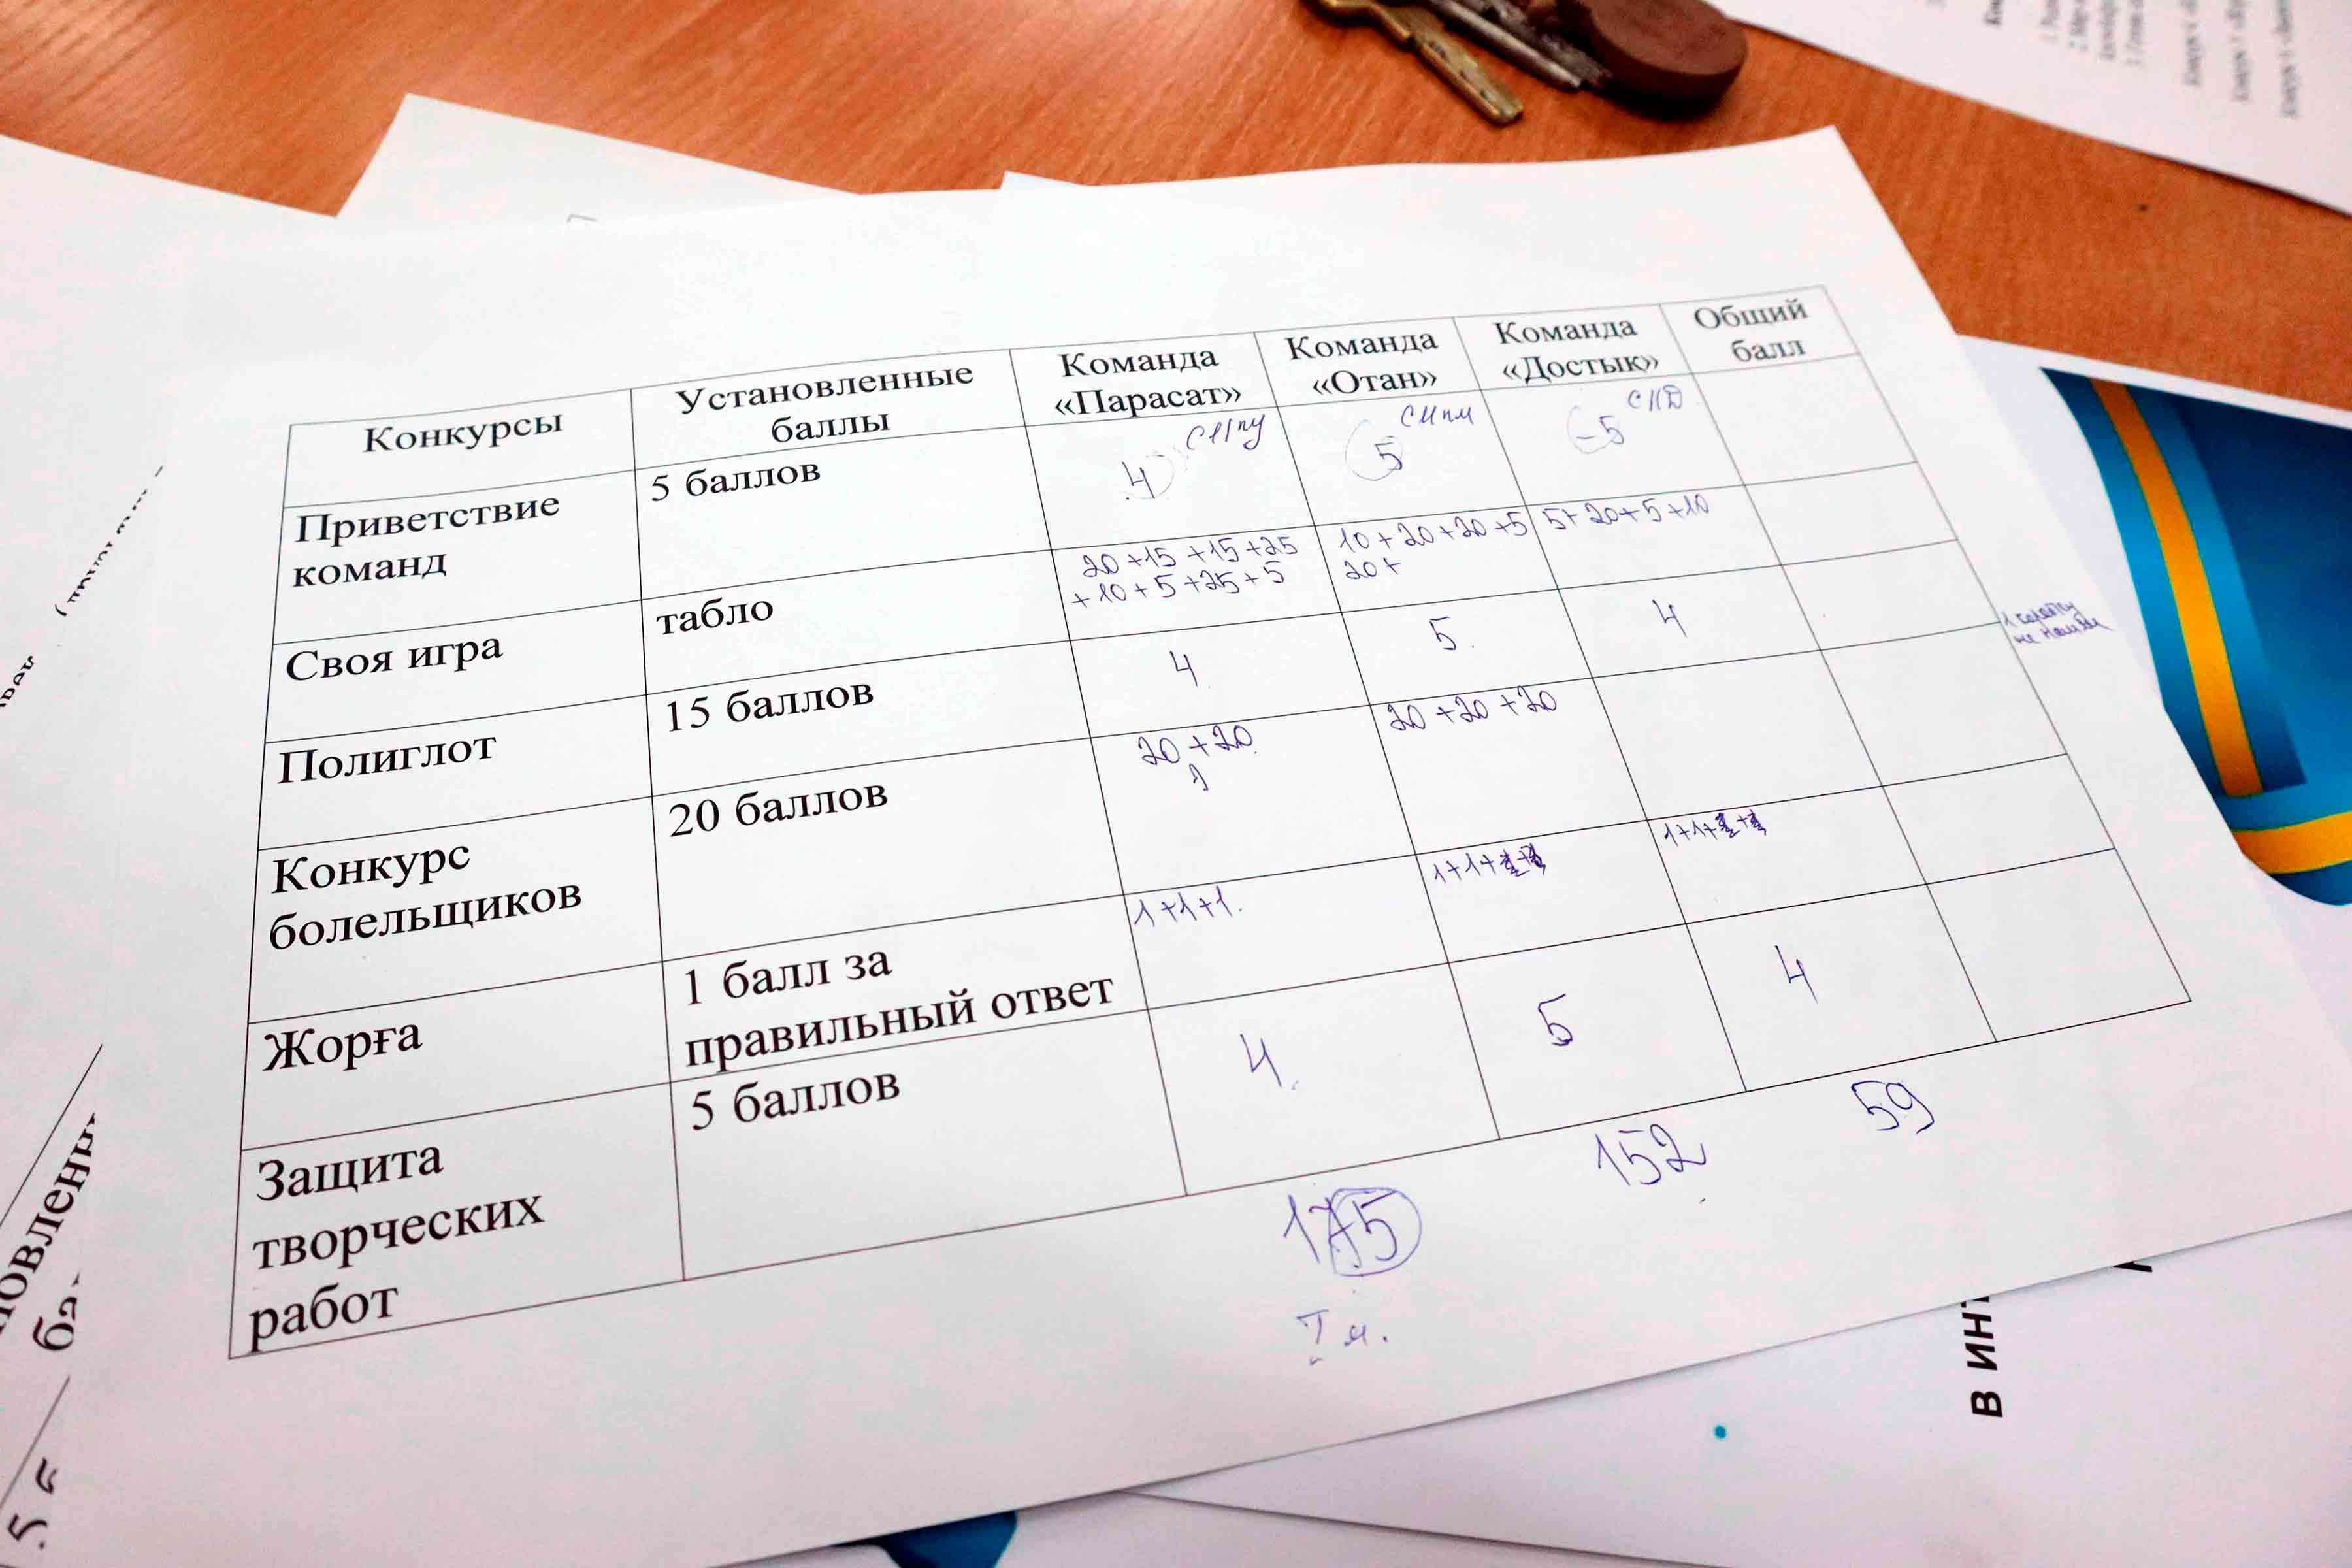 Конкурсы
Установленные
баллы
Команда
«Парасат»
Команда
«Отан»
Команда
«Достык»
Общий
балл
Приветствие
команд
5 баллов
4
5
-5
Своя игра
табло
20+15+15+25
+10+5+25+5
10+20+20+5
20+
5+20+5+10
Полиглот
15 баллов
4
5
4
Конкурс
болельщиков
20 баллов
20+20
20+20+20
Жорға
1 балл за
правильный ответ
1+1+1
1+1+
1+1+
Защита
творческих
работ
5 баллов
4
5
4
175
152
59
I м.
в инт